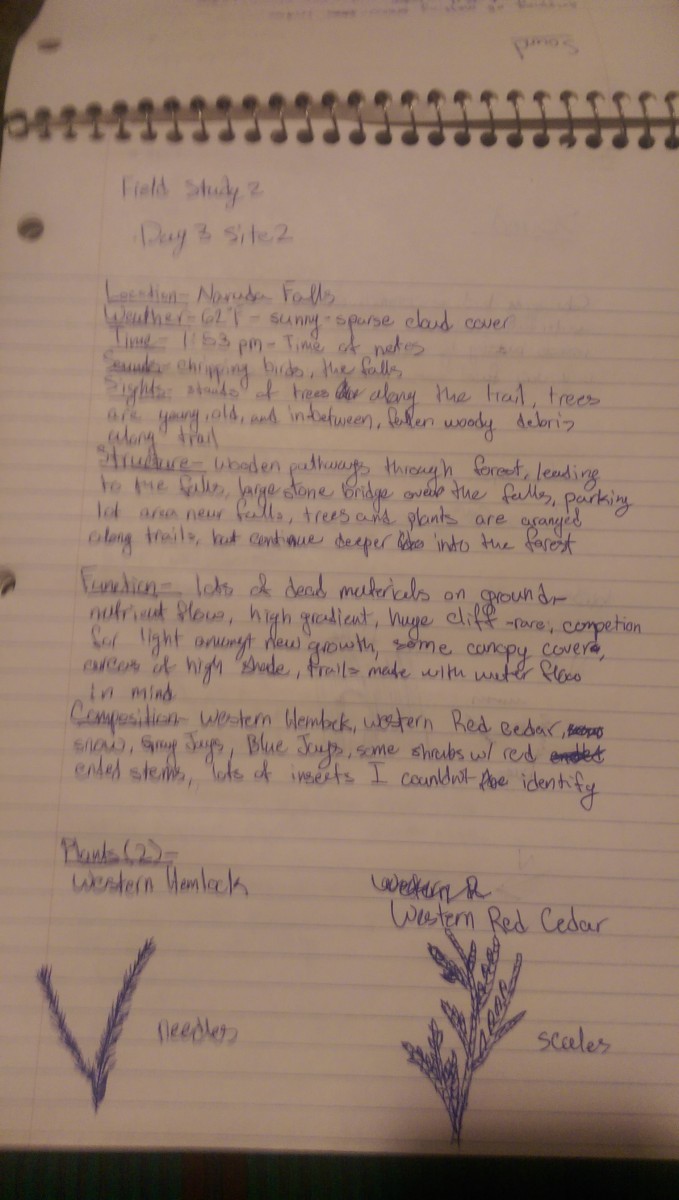 Sound
Field Study 2
Day 3 Site 2
Location- Narada Falls
Weather- 62°F - sunny - sparse cloud cover
Time- 1:53 pm - Time of notes
Sounds- chirpping birds, the falls
Sights- stands of trees along the trail, trees
are young, old, and inbetween, fallen woody debris
along trail
Structure- wooden pathways through forest, leading
to the falls, large stone bridge over the falls, parking
lot area near falls, trees and plants are aranged
along trails, but continue deeper into the forest
Function- lots of dead materials on ground-
nutrient flow, high gradient, huge cliff -rare, competion
for light amungst new growth, some canopy cover,
areas of high shade, trails made with water flow
in mind
Composition- Western Hemlock, western Red cedar,
snow, Gray Jays, Blue Jays, some shrubs w/ red
ended stems, lots of insects I coundn't identify
Plants (2)-
Western Hemlock
Western R
Western Red Cedar
needles
scales